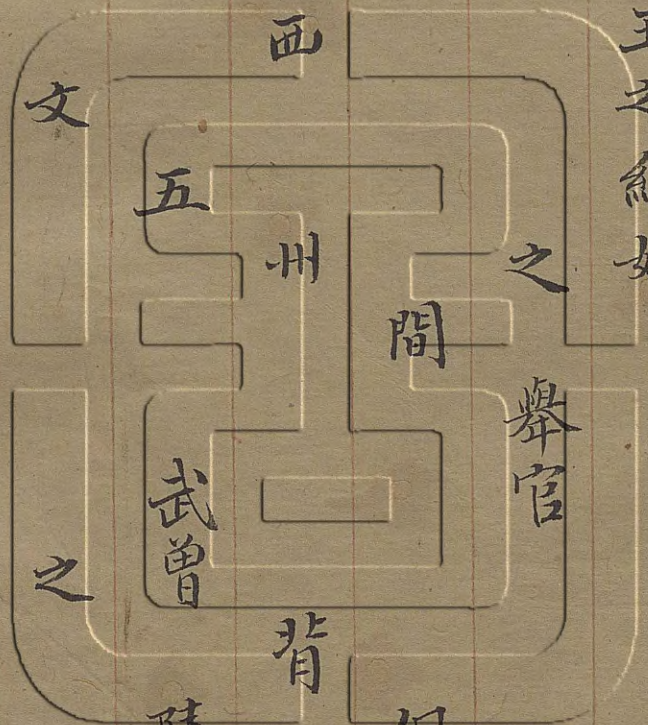 王之
之舉官
間
西州背
五武曾
文之